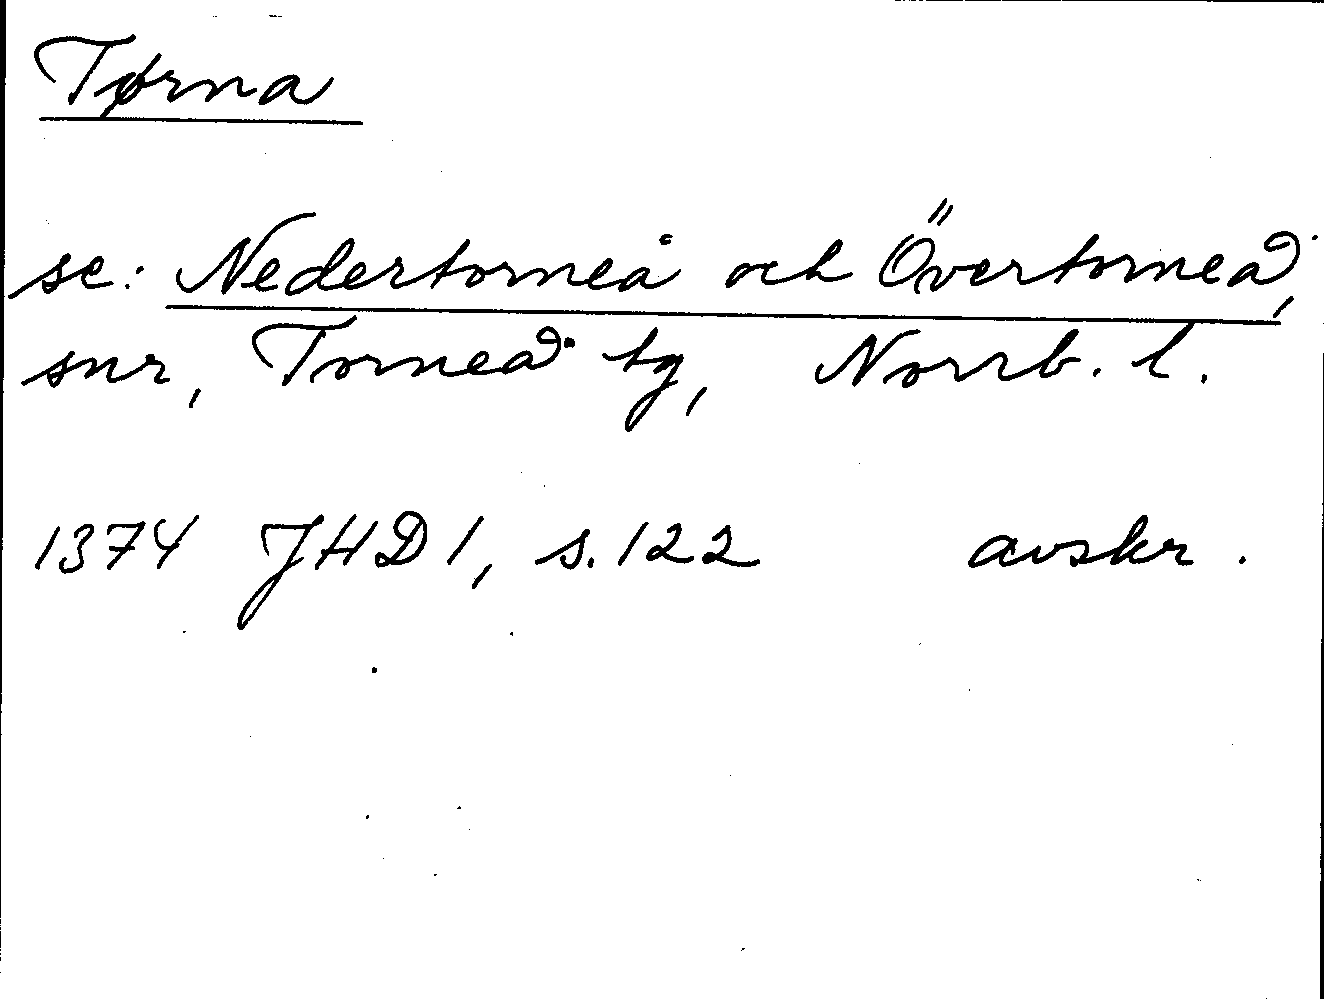 Tørna
se: Nedertorneå och Övertorneå,
snr, Torneå tg, Norrb. l.
1374 JHD 1, s. 122 avskr.